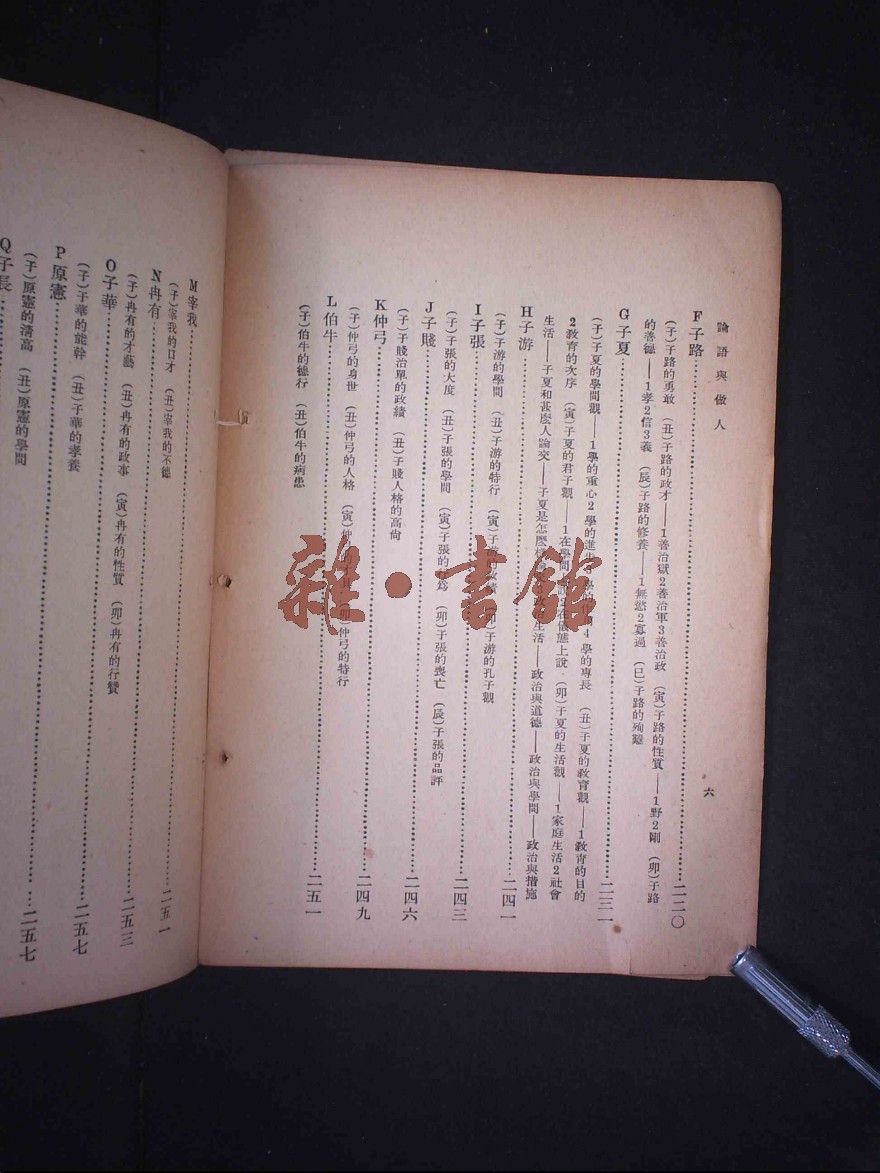 論語與做人
六
F 子路……二二〇
(子)子路的勇敢 (丑)子路的政才——1善治獄2善治軍3善治政 (寅)子路的性質——1野2剛 (卯)子路
的善德——1孝2信3義 (辰)子路的修養——1無慾2寡過 (巳)子路的殉難
G 子夏……二三一
(子)子夏的學問觀——1學的重心2學的進步3學的 4學的專長 (丑)子夏的教育觀——1教育的目的
2教育的次序 (寅)子夏的君子觀——1在學問上說2在儀態上說 (卯)子夏的生活觀——1家庭生活2社會
生活——子夏和甚麼人論交——子夏是怎麼樣 生活——政治與道德——政治與學問——政治與措施
H 子游……二四一
(子)子游的學問 (丑)子游的特行 (寅)子游的政績 (卯)子游的孔子觀
I 子張……二四三
(子)子張的大度 (丑)子張的學問 (寅)子張的行為 (卯)子張的喪亡 (辰)子張的品評
J 子賤……二四六
(子)子賤治單的政績 (丑)子賤人格的高尙
K 仲弓……二四九
(子)仲弓的身世 (丑)仲弓的人格 (寅)仲弓的 (卯)仲弓的特行
L 伯牛……二五一
(子)伯牛的德行 (丑)伯牛的病患
M 宰我……二五一
(子)宰我的口才 (丑)宰我的不德
N 冉有……二五三
(子)冉有的才藝 (丑)冉有的政事 (寅)冉有的性質 (卯)冉有的行贊
O 子華……二五七
(子)子華的能幹 (丑)子華的孝養
P 原憲……二五七
(子)原憲的清高 (丑)原憲的學問
Q 子長……
雜·書館